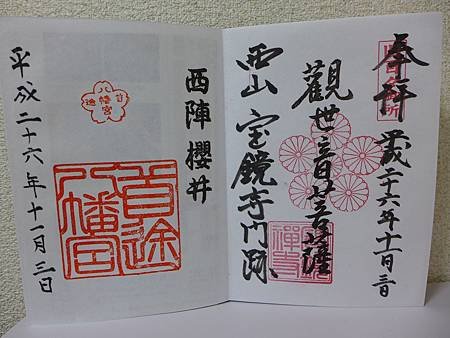 奉拝 平成二十六年十一月三日
觀世音菩薩
西山 宝鏡寺門跡
西陣櫻井
八幡宮
首途
八幡宮
平成二十六年十一月三日